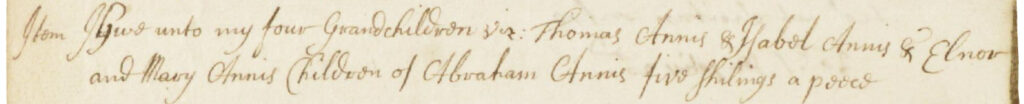 Item I Give unto my four Grandchildren viz: Thomas Annis & Isabel Annis & Elnor
and Mary Annis Children of Abraham Annis five shilings a peece